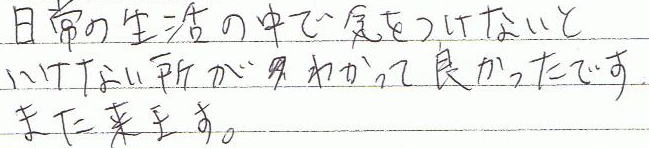 日常の生活の中で気をつけないと
いけない所がわかって良かったです
また来ます。